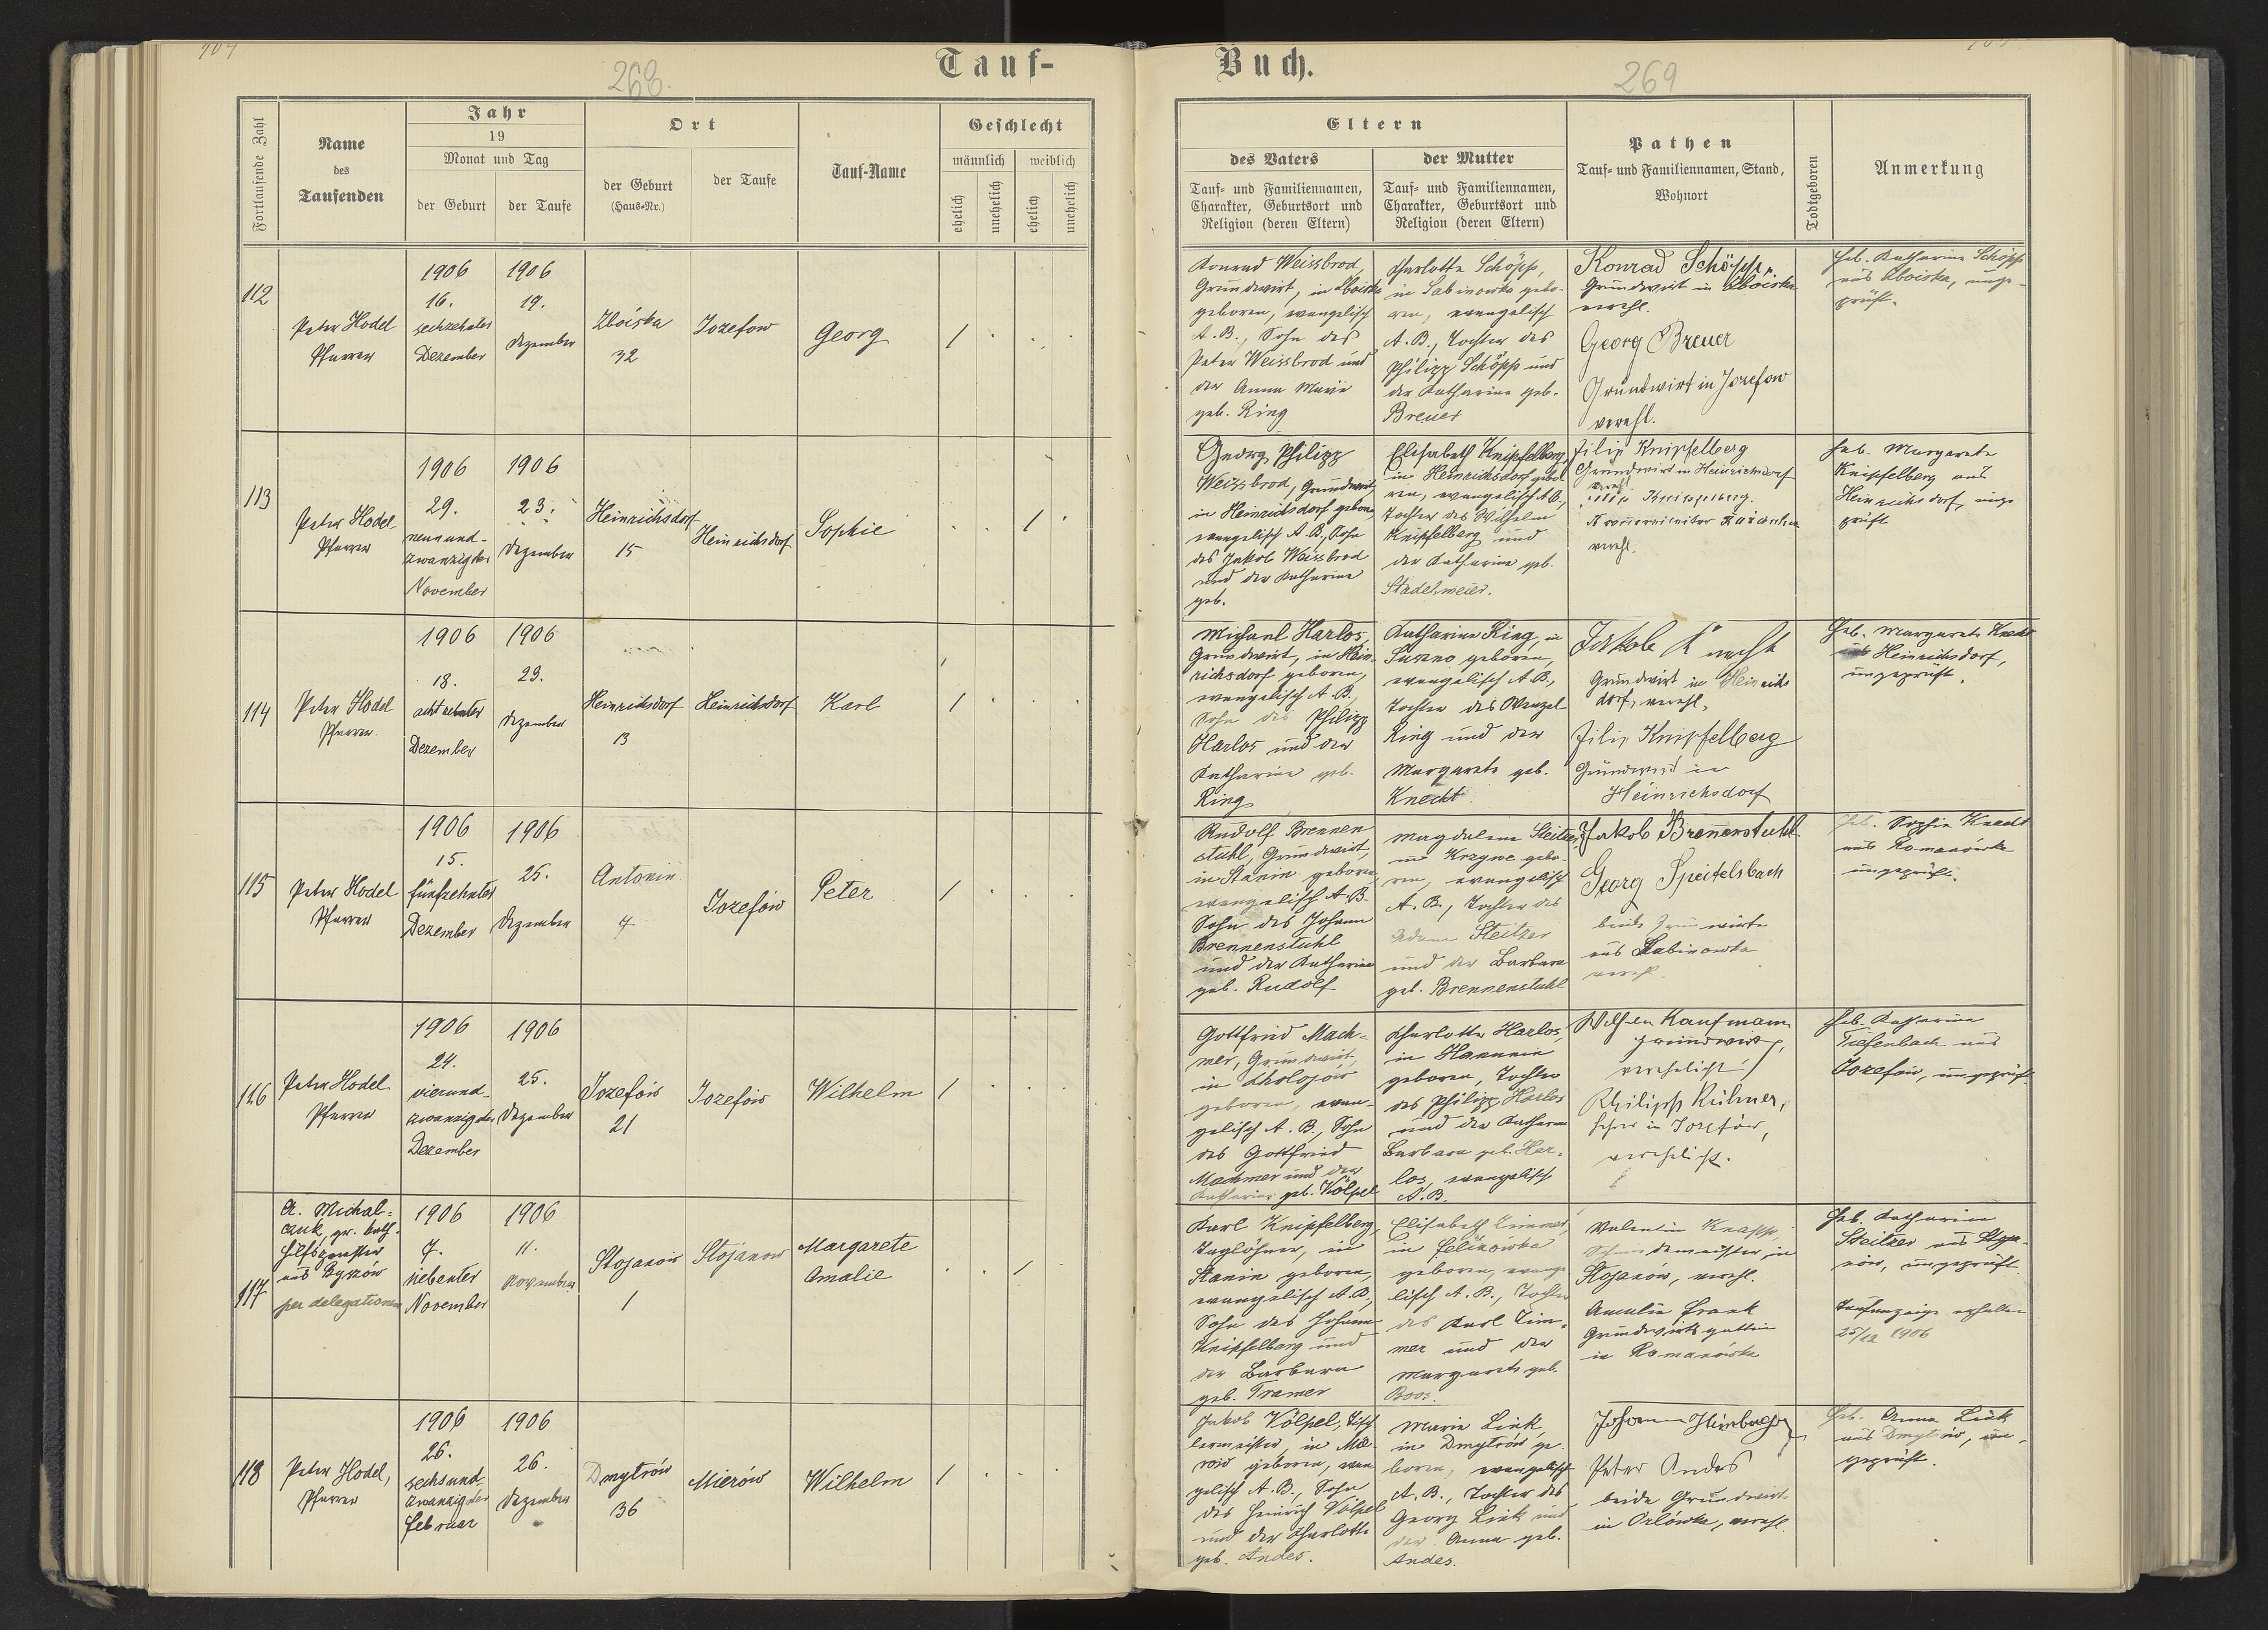 Tauf-
Buch.
268.
269
Fortlaufende Zahl
Name
des
Taufenden
Jahr
19
Monat und Tag
der Geburt
der Taufe
Ort
der Geburt
(Haus-Nr.)
der Taufe
Tauf-Name
Geschlecht
männlich
weiblich
ehelich
unehelich
ehelich
unehelich
Eltern
des Vaters
Tauf- und Familiennamen,
Charakter, Geburtsort und
Religion (deren Eltern)
der Mutter
Tauf- und Familiennamen,
Charakter, Geburtsort und
Religion (deren Eltern)
Pathen
Tauf- und Familiennamen, Stand,
Wohnort
Todtgeboren
Anmerkung
112
Peter Hodel
Pfarrer
1906
16.
sechzehnter
Dezember
1906
19.
Dezember
Zboiska
32
Jozefow
Georg
1
Konrad Weissbrod,
Grundwirt, in Zboiska
geboren, evangelisch
A. B., Sohn des
Peter Weissbrod und
der Anna Marie
geb. Ring
Charlotte Schöpp,
in Sabinowka gebo-
ren, evangelisch
A. B., Tochter des
Philipp Schöpp und
der Katharina geb.
Breuer
Konrad Schöpp
Grundwirt in Zboiska
verehl.
Georg Breuer
Grundwirt in Jozefow
verehl.
Heb. Katharina Schöpp
aus Zboiska, unge-
prüft.
113
Peter Hodel
Pfarrer
1906
29.
neunund-
zwanzigster
November
1906
23.
Dezember
Heinrichsdorf
15
Heinrichsdorf
Sophie
1
Georg Philipp
Weissbrod, Grundwirt,
in Heinrichsdorf geboren,
evangelisch A. B., Sohn
des Jakob Weissbrod
und der Katharina
geb.
Elisabeth Knipfelberg
in Heinrichsdorf gebo-
ren, evangelisch A. B.,
Tochter des Wilhelm
Knipfelberg und
der Katharina geb.
Stadelmeier.
Filip Knipfelberg
Grundwirt in Heinrichsdorf
verehl.
verehl.
Heb. Margareta
Knipfelberg aus
Heinrichsdorf, unge-
prüft
114
Peter Hodel
Pfarrer.
1906
18.
achtzehnter
Dezember
1906
23.
Dezember
Heinrichsdorf
13
Heinrichsdorf
Karl
1
Michael Harlos,
Grundwirt, in Hein-
richsdorf geboren,
evangelisch A. B.,
Sohn des Philipp
Harlos und der
Katharina geb.
Ring
Katharina Ring, in
geboren,
evangelisch A. B.,
Tochter des Wenzel
Ring und der
Margareta geb.
Knecht
Jakob Knecht
Grundwirt in Heinrichs
dorf, verehl.
Filip Knipfelberg
Grundwirt in
Heinrichsdorf
Heb. Margareta Knecht
aus Heinrichsdorf,
ungeprüft.
115
Peter Hodel
Pfarrer
1906
15.
fünfzehnter
Dezember
1906
25.
Dezember
Antonin
4
Jozefów
Peter
1
Rudolf Brennen
stuhl, Grundwirt,
in Stanin geboren,
evangelisch A. B.
Sohn des Johann
Brennenstuhl
und der Katharina
geb. Rudolf
Magdalena Steitzer,
in Krzywe gebo-
ren, evangelisch
A. B., Tochter des
Adam Steitzer
und der Barbara
geb. Brennenstuhl
Jakob Brennenstuhl
Georg Speitelsbach
beide Grundwirte
aus Sabinowka
verehl.
Heb. Sophie Knecht
aus Romanówka
ungeprüft.
116
Peter Hodel
Pfarrer
1906
24.
vierund-
zwanzigster
Dezember
1906
25.
Dezember
Jozefów
21
Jozefów
Wilhelm
1
Gottfried Mach-
mer, Grundwirt,
in Cholojów
geboren, evan-
gelisch A. B., Sohn
des Gottfried
Machmer und der
Katharina geb. Völpel
Charlotte Harlos,
in Hanunin
geboren, Tochter
des Philipp Harlos
und der Katharina
Barbara geb. Har-
los, evangelisch
A. B.
Wilhelm Kaufmann
Grundwirt,
verehelicht
Philipp Kühner,
Lehrer in Jozefów,
verehelicht.
Heb. Katharina
Tiefenbach aus
Jozefów, ungeprüft
117
A. Michal-
czuk, gr. kath.
Hilfspriester
aus Byszów
per delegationem
1906
7.
siebenter
November
1906
11.
November
Stojanow
1
Stojanow
Margarete
Amalie
1
Karl Knipfelberg,
Taglöhner, in
Stanin geboren,
evangelisch A. B.,
Sohn des Johann
Knipfelberg und
der Barbara
geb. Tramer
Elisabeth Zimmer,
in Felikówka
geboren, evange-
lisch A. B., Tochter
des Karl Zim-
mer und der
Margareta geb.
Boos.
Valentin Knapp,
in
Stojanów, verehl.
Amalia Frank
Grundwirtsgattin
in Romanówka
Heb. Katharina
Steitzer aus Stoja-
nów, ungeprüft
Taufanzeige erhalten
25/12 1906
118
Peter Hodel,
Pfarrer
1906
26.
sechsund-
zwanzigster
Februar
1906
26.
Dezember
Dmytrów
36
Mierów
Wilhelm
1
Jakob Völpel, Tisch-
lermeister, in Mie-
rów geboren, evan-
gelisch A. B., Sohn
des Heinrich Völpel
und der Charlotte
geb. Andes.
Marie Link,
in Dmytrów ge-
boren, evangelisch
A. B., Tochter des
Georg Link und
der Anna geb.
Andes.
Johann
Peter Andes
beide Grundwirte
in Orlówka, verehl.
Heb. Anna Link
aus Dmytrów, un-
geprüft.